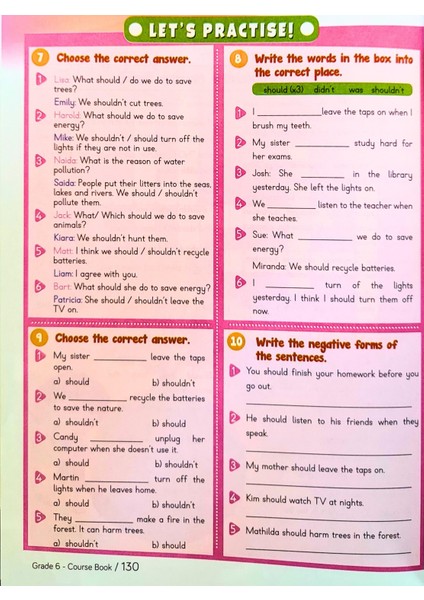 LET'S PRACTISE!
7 Choose the correct answer.
1 Lisa: What should / do we do to save
trees?
Emily: We shouldn't cut trees.
2 Harold: What should we do to save
energy?
Mike: We shouldn't / should turn off the
lights if they are not in use.
3 Naida: What is the reason of water
pollution?
Saida: People put their litters into the seas,
lakes and rivers. We should / shouldn't
pollute them.
4 Jack: What/ Which should we do to save
animals?
Kiara: We shouldn't hunt them.
5 Matt: I think we should / shouldn't recycle
batteries.
Liam: I agree with you.
6 Bart: What should she do to save energy?
Patricia: She should / shouldn't leave the
TV on.
8 Write the words in the box into
the correct place.
should (x3) didn't was shouldn't
1 I ____________leave the taps on when I
brush my teeth.
2 My sister ____________ study hard for
her exams.
3 Josh: She __________ in the library
yesterday. She left the lights on.
4 We __________ listen to the teacher when
she teaches.
5 Sue: What ____________ we do to save
energy?
Miranda: We should recycle batteries.
6 I __________ turn of the lights
yesterday. I think I should turn them off
now.
9 Choose the correct answer.
1 My sister ____________ leave the taps
open.
a) should b) shouldn't
2 We ____________ recycle the batteries
to save the nature.
a) shouldn't b) should
3 Candy ____________ unplug her
computer when she doesn't use it.
a) should b) shouldn't
4 Martin ____________ turn off the
lights when he leaves home.
a) should b) shouldn't
5 They ____________ make a fire in the
forest. It can harm trees.
a) shouldn't b) should
10 Write the negative forms of
the sentences.
1 You should finish your homework before you
go out.
2 He should listen to his friends when they
speak.
3 My mother should leave the taps on.
4 Kim should watch TV at nights.
5 Mathilda should harm trees in the forest.
Grade 6 - Course Book / 130